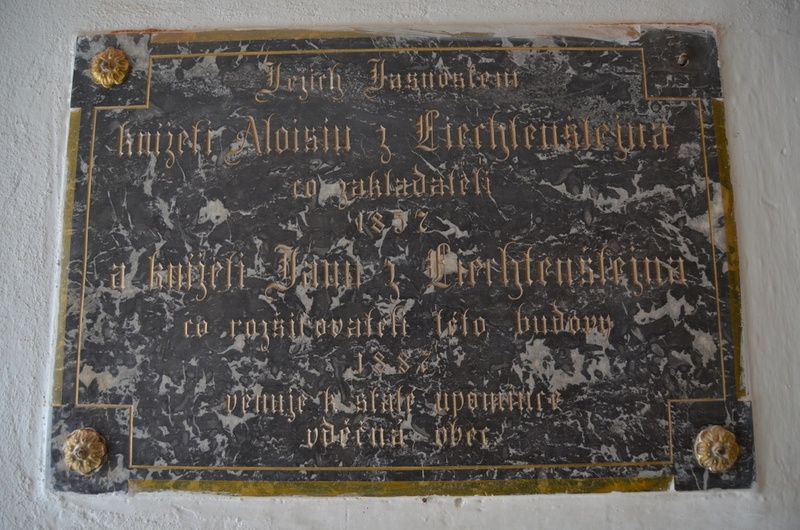 Jejich Jasnostem
knížeti Aloisiu z Liechtenštejna
co zakladateli
1857
a knížeti Janu z Liechtenštejna
co rozsirovateli této budovy
1887
venuje k stálé upomince
vděčná obec